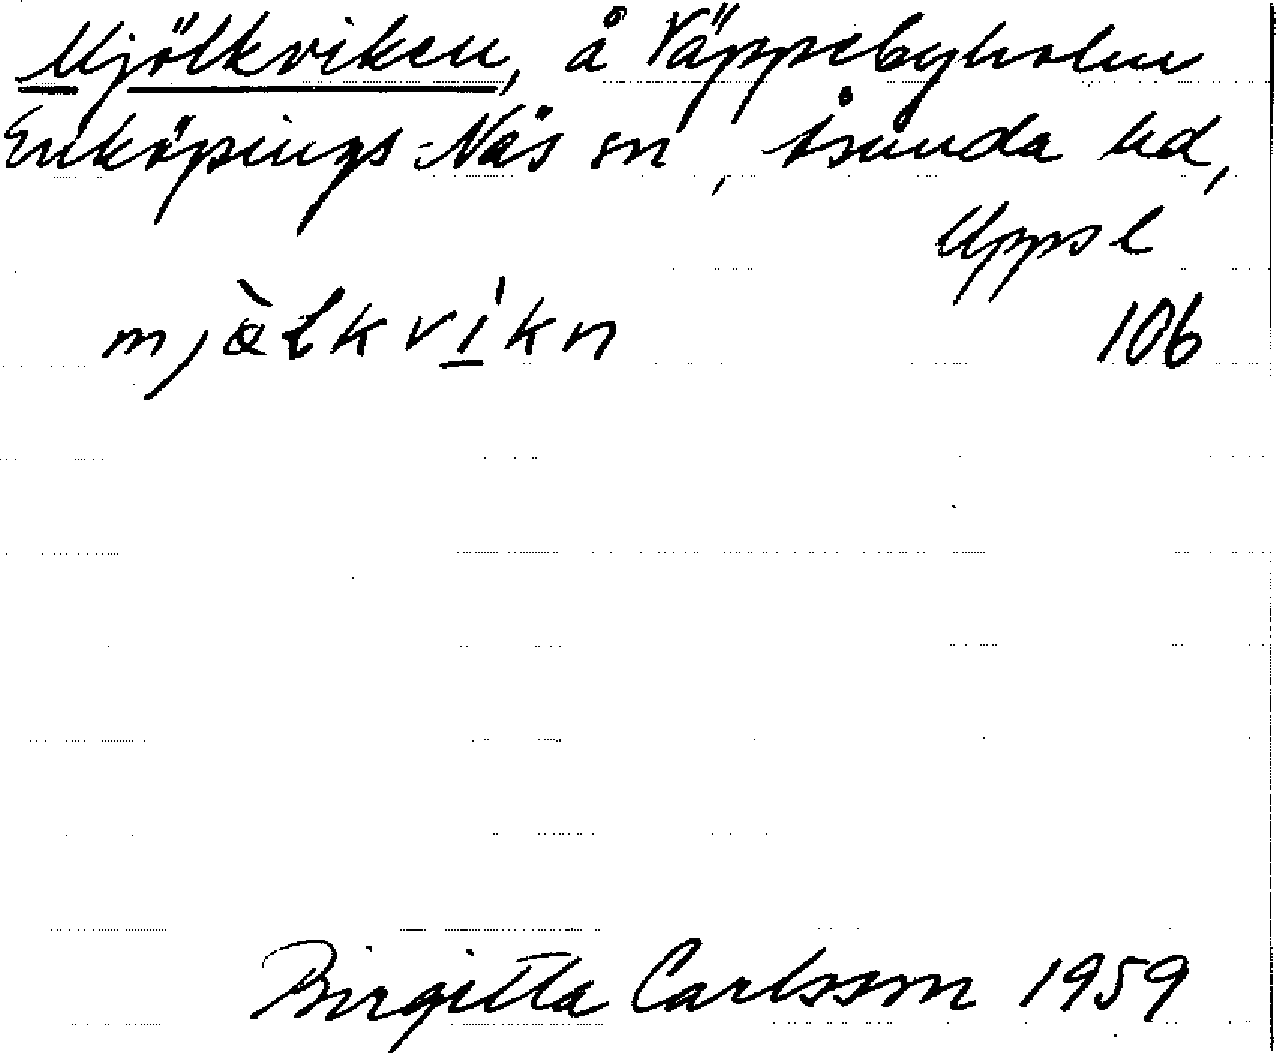 Mjölkviken, å Väppebyholm
Enköpings-Näs sn, Åsunda hd,
Uppsl
mjölkvikn 106
Birgitta Carlsson 1959